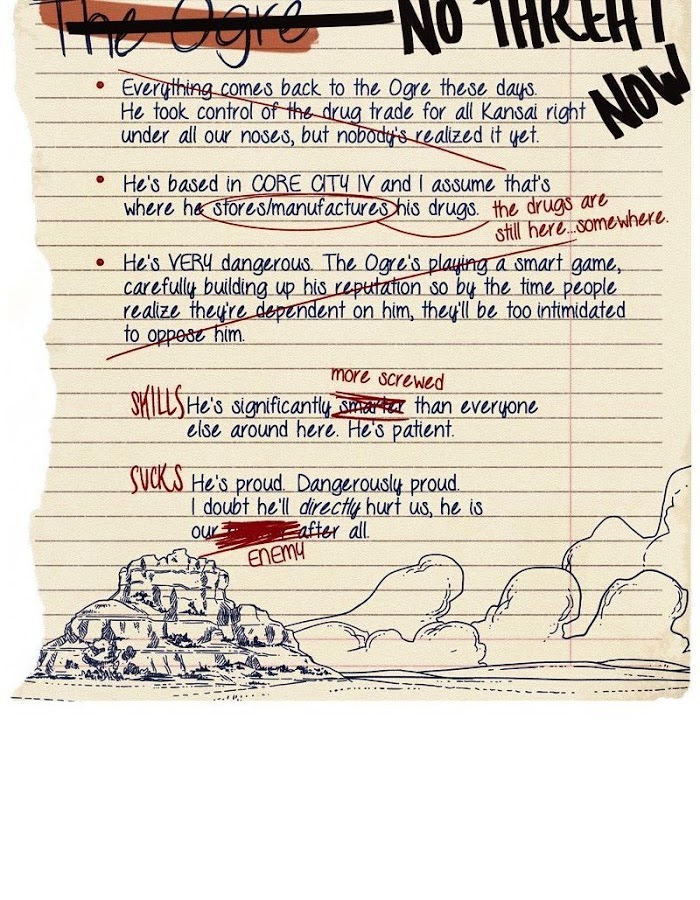 The Ogre NO THREAT
NOW
• Everything comes back to the Ogre these days.
He took control of the drug trade for all Kansai right
under all our noses, but nobody's realized it yet.
• He's based in CORE CITY IV and I assume that's
where he stores/manufactures his drugs. the drugs are
still here...somewhere.
• He's VERY dangerous. The Ogre's playing a smart game,
carefully building up his reputation so by the time people
realize they're dependent on him, they'll be too intimidated
to oppose him.
more screwed
SKILLS He's significantly smarter than everyone
else around here. He's patient.
SUCKS He's proud. Dangerously proud.
I doubt he'll directly hurt us, he is
our after all.
ENEMY